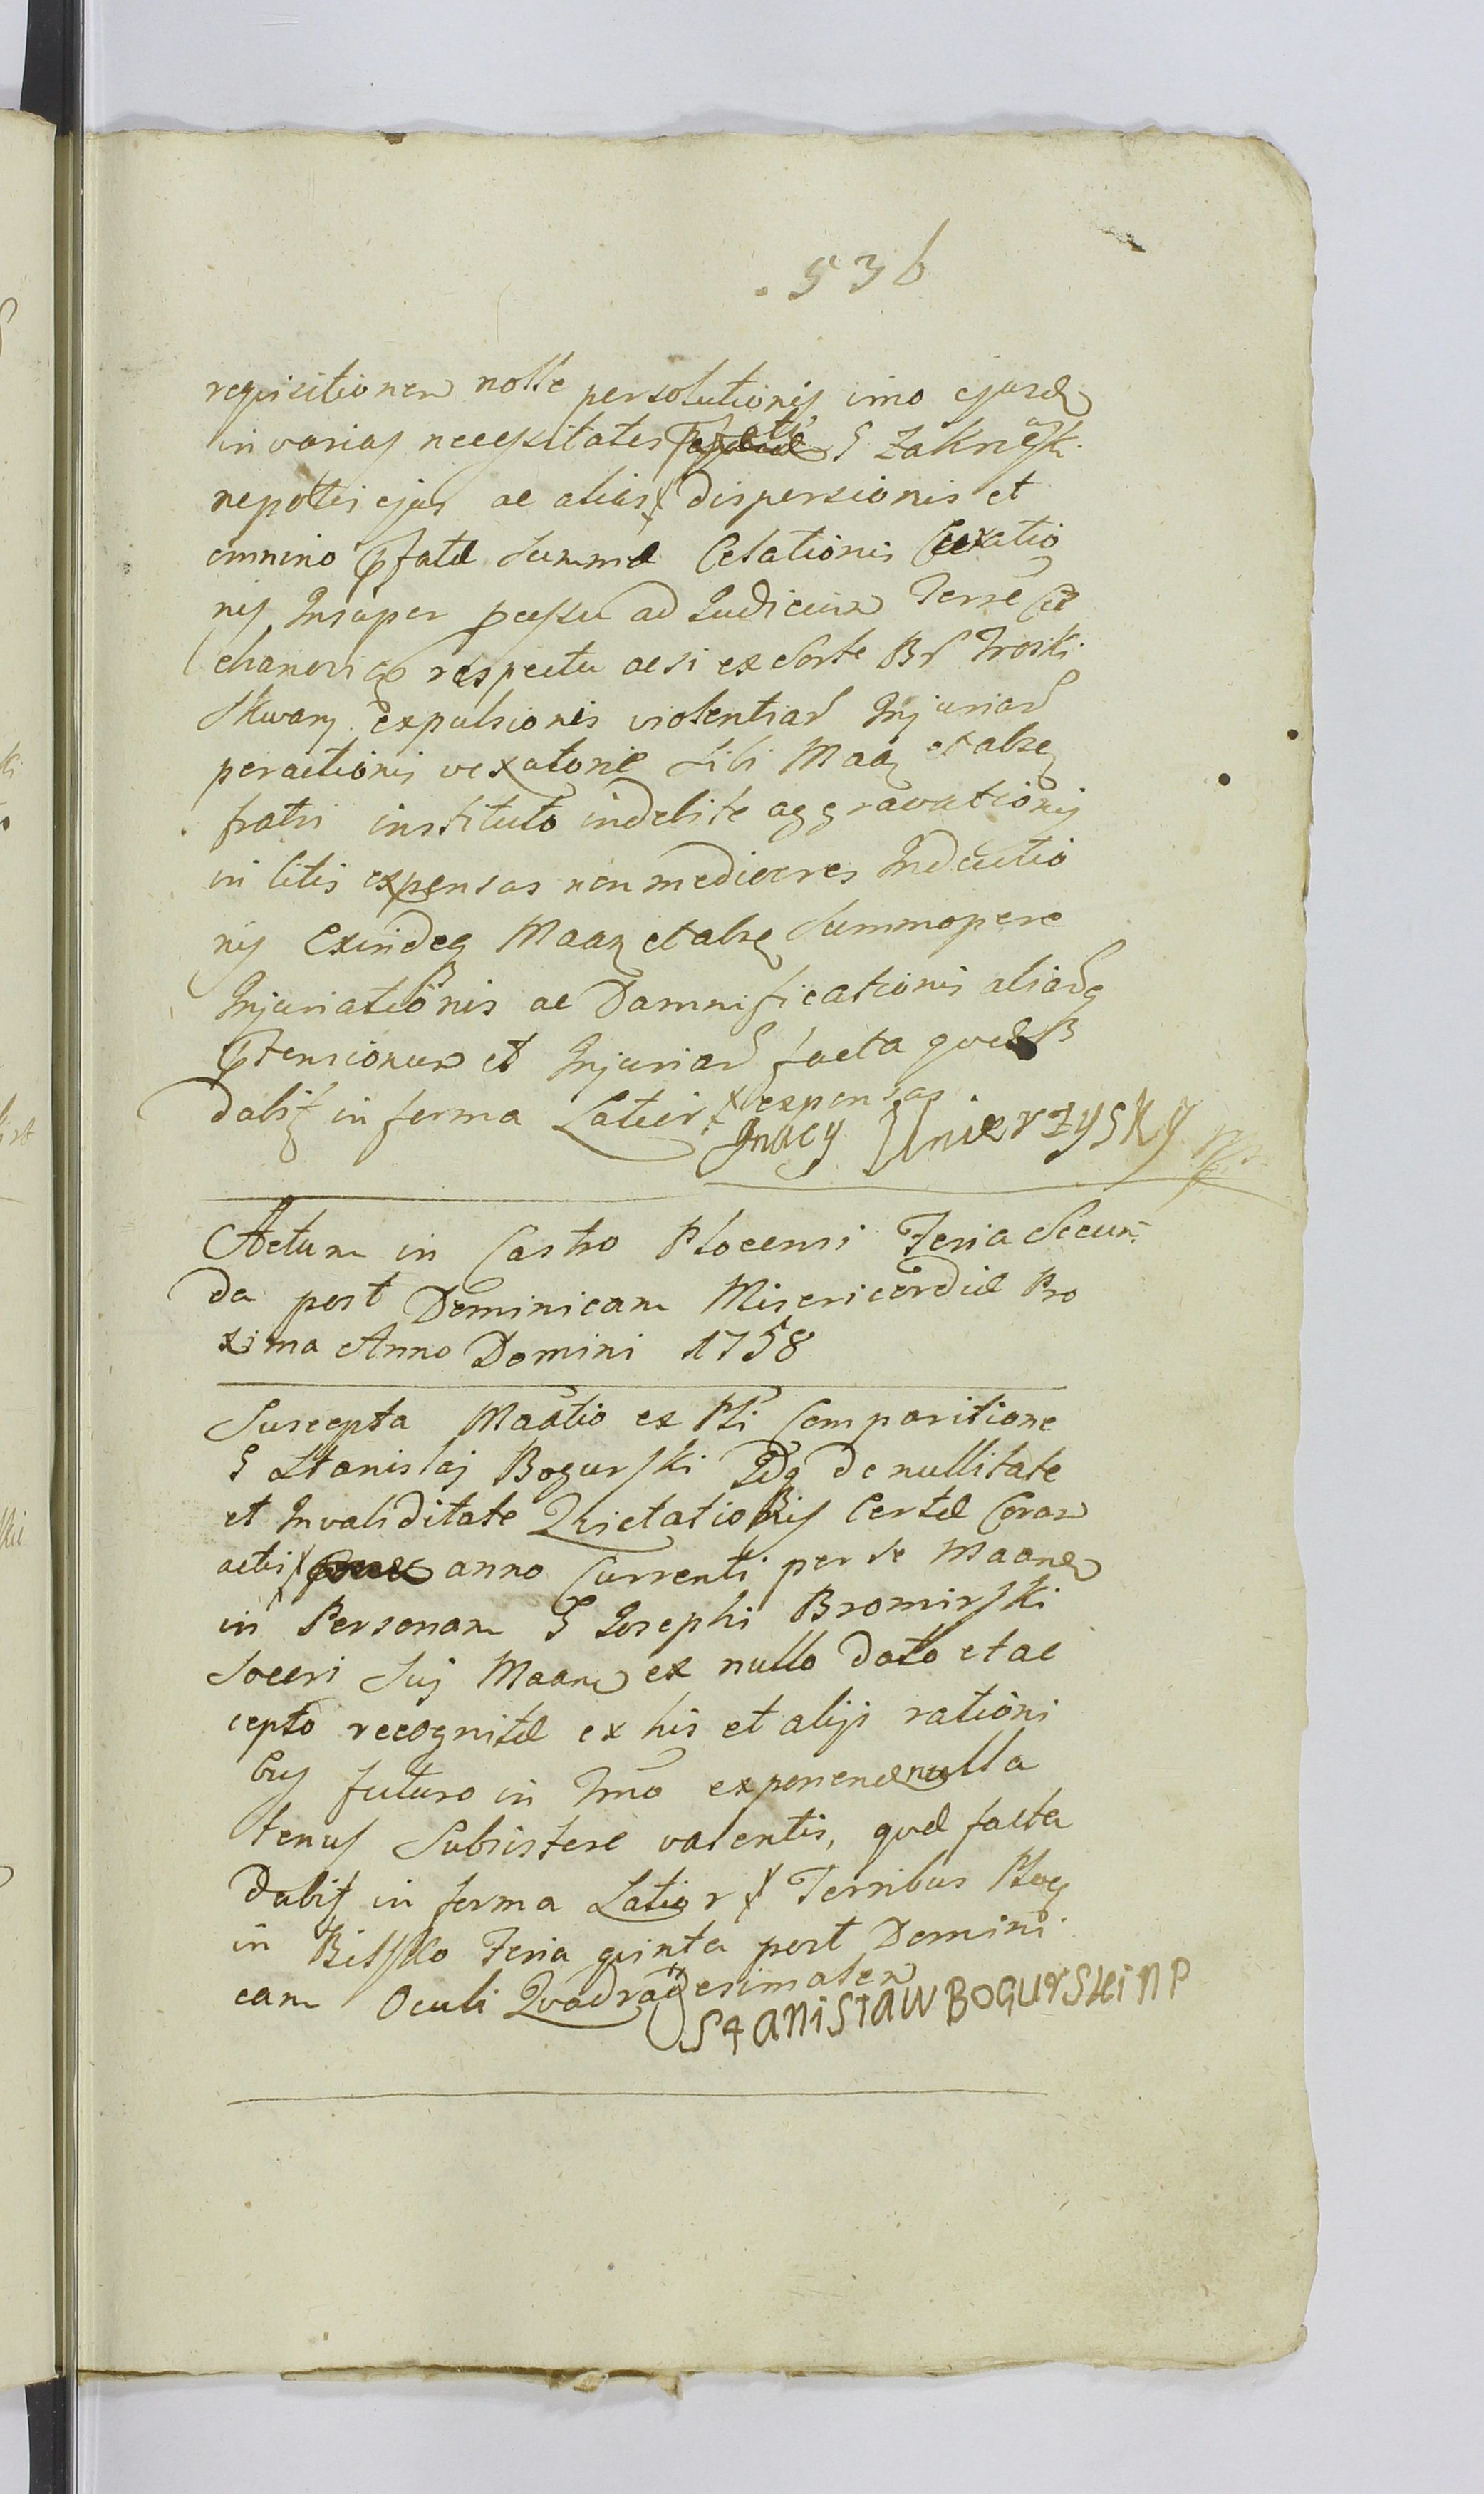 536
requisitionem nolle persolutionis imo ejusd
in varias necessitates G Zakrzeski
nepotis ejus ac alias dispersionis et
omnino Pfatae Summae Celationis Vexatio
nis Insuper pcessu ad Judicium Terre Cie
chanovien respectu acsi ex Sorte Br Troski
Skwary expulsionis violentiar Injuriar
peractionis vexatorie sibi Maa et alse
fratri instituto indebite aggravationis
in litis expensas non mediocres Inductio
nis Exindeq Maan et alse Summopere
Injuriationis ac Damnificationis aliarq
Ptensionum et Injuriar facta quae
dabit in forma Latior expensas
Jnacy Unierzysky
Actum in Castro Plocensi Feria Secun
da post Dominicam Misericordiae Pro
xima Anno Domini 1758
Suscepta Maatio ex Pti Comparitione
G Stanislai Bogurski Idq de nullitate
et Invaliditate Quietationis Certae Coram
actis anno Currenti per se Maane
in Personam G Josephi Bromirski
Soceri Sui Maam ex nullo dato et ac
cepto recognitae ex his et alijs rationi
bus futuro in Tmo exponen nulla
tenus Subsistere valentis, quae facta
dabit in forma Latior Terribus Ploc
in Bielsko Feria quinta post Domini
cam Oculi Quadragesimalem
StANiSłAW BOGUrSKi n P